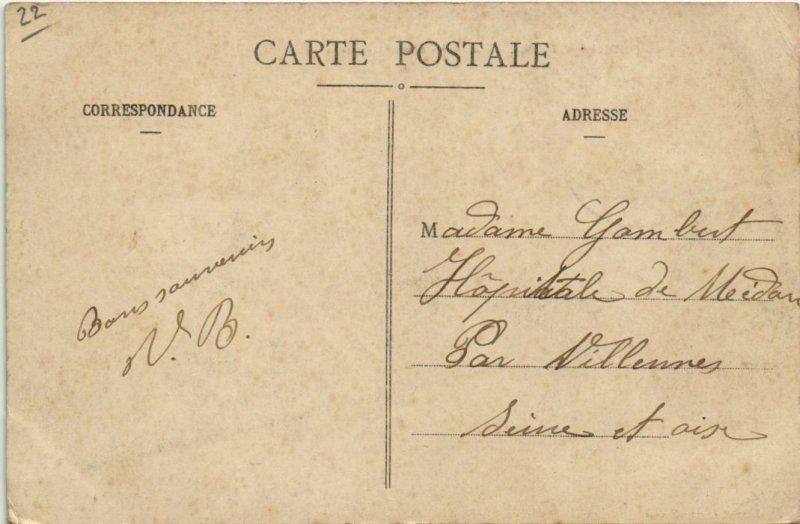 22
CARTE POSTALE
CORRESPONDANCE
ADRESSE
Bons souvenirs
V. B.
Madame Gambert
Hôpitale de Médan
Par Villennes
Seine et oise